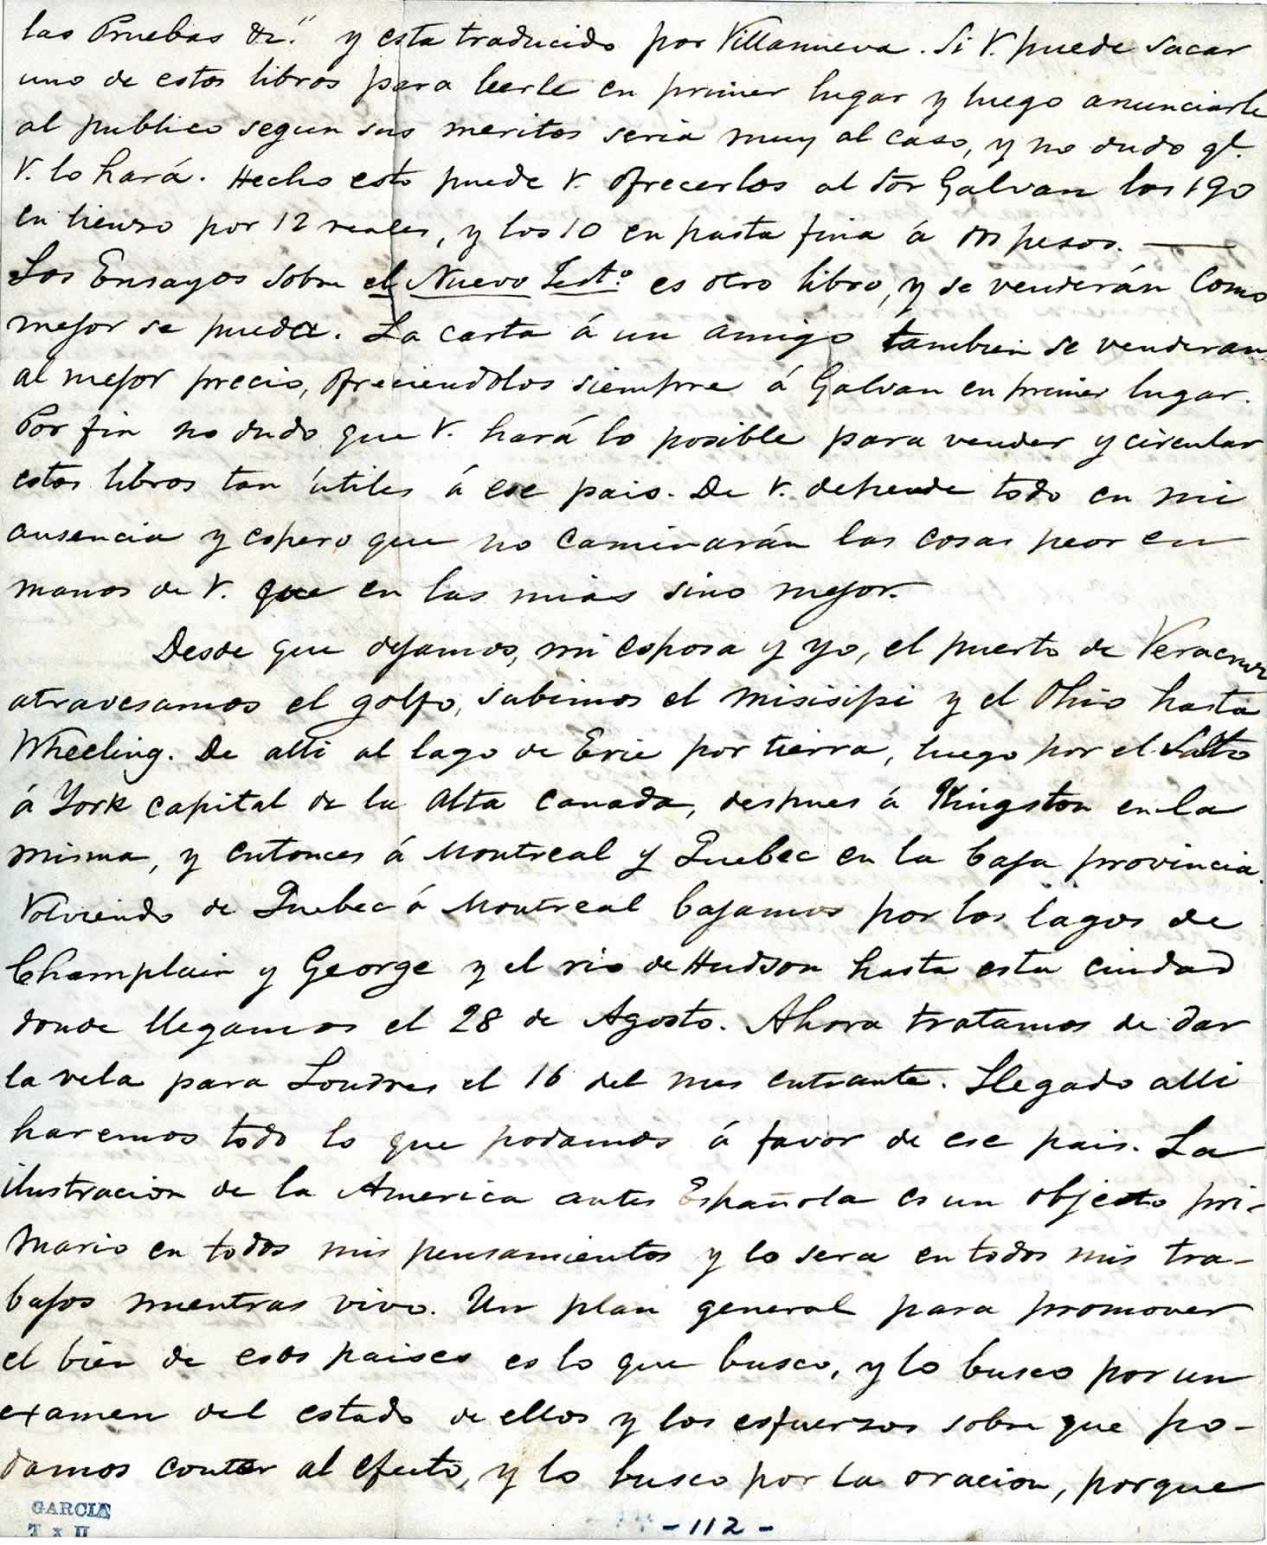 las Pruebas &." y esta traducido por Villanueva. Si V. puede sacar
uno de estos libros para leerle en primer lugar y luego anunciarle
al publico segun sus meritos seria muy al caso, y no dudo qe.
V. lo hará. Hecho esto puede V. ofrecerlos al Sor Galvan los 190
en lienzo por 12 reales, y los 10 en pasta fina á dos pesos. —
Los Ensayos sobre el Nuevo Testo. es otro libro, y se venderán como
mejor se pueda. La carta á un amigo tambien se venderan
al mejor precio, ofreciendolos siempre á Galvan en primer lugar.
Por fin no dudo que V. hará lo posible para vender y circular
estos libros tan útiles á ese pais. De V. depende todo en mi
ausencia y espero que no caminarán las cosas peor en
manos de V. que en las mias sino mejor.
Desde que dejamos, mi esposa y yo, el puerto de Veracruz
atravesamos el golfo, subimos el Misisipi y el Ohio hasta
Wheeling. De alli al lago de Erie por tierra, luego por el Salto
á York capital de la Alta Canada, despues á Kingston en la
misma, y entonces á Montreal y Quebec en la baja provincia.
Volviendo de Quebec á Montreal bajamos por los lagos de
Champlain y George y el rio de Hudson hasta esta ciudad
donde llegamos el 28 de Agosto. Ahora tratamos de dar
la vela para Londres el 16 del mes entrante. Llegado alli
haremos todo lo que podamos á favor de ese pais. La
ilustracion de la America antes Española es un objecto pri-
mario en todos mis pensamientos y lo sera en todos mis tra-
bajos mientras vivo. Un plan general para promover
el bien de esos paises es lo que busco, y lo busco por un
examen del estado de ellos y los esfuerzos sobre que po-
damos contar al efecto, y lo busco por la oracion, porque
GARCIA
T x II
-112-